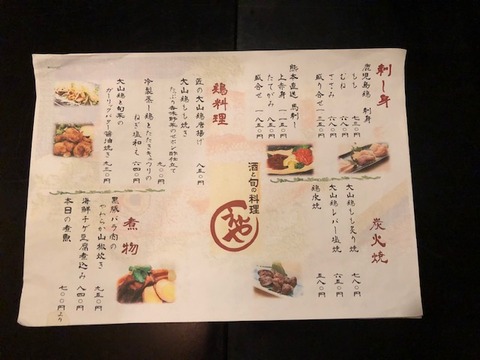 刺し身
鹿児島鶏 刺身
もも 七三〇円
むね 六五〇円
ささみ 六五〇円
盛り合せ
熊本直送 馬刺し
上赤身
たてがみ
盛合せ
鶏料理
匠の大山鶏唐揚げ 八五〇円
大山鶏もも焼き
たっぷり香味野菜のポン酢仕立て 九〇〇円
冷製蒸し鶏とたたきキュウリの
ねぎ塩和え 六四〇円
大山鶏と旬菜の
ガーリックバター醤油焼き 九三〇円
酒と旬の料理
炭火焼
大山鶏もも炙り焼 七八〇円
大山鶏レバー塩焼 六五〇円
鶏皮焼 五八〇円
煮物
黒豚バラ肉の
やわらか山椒炊き 九五〇円
海鮮チゲ豆腐煮込み 八四〇円
本日の煮魚 七〇〇円より